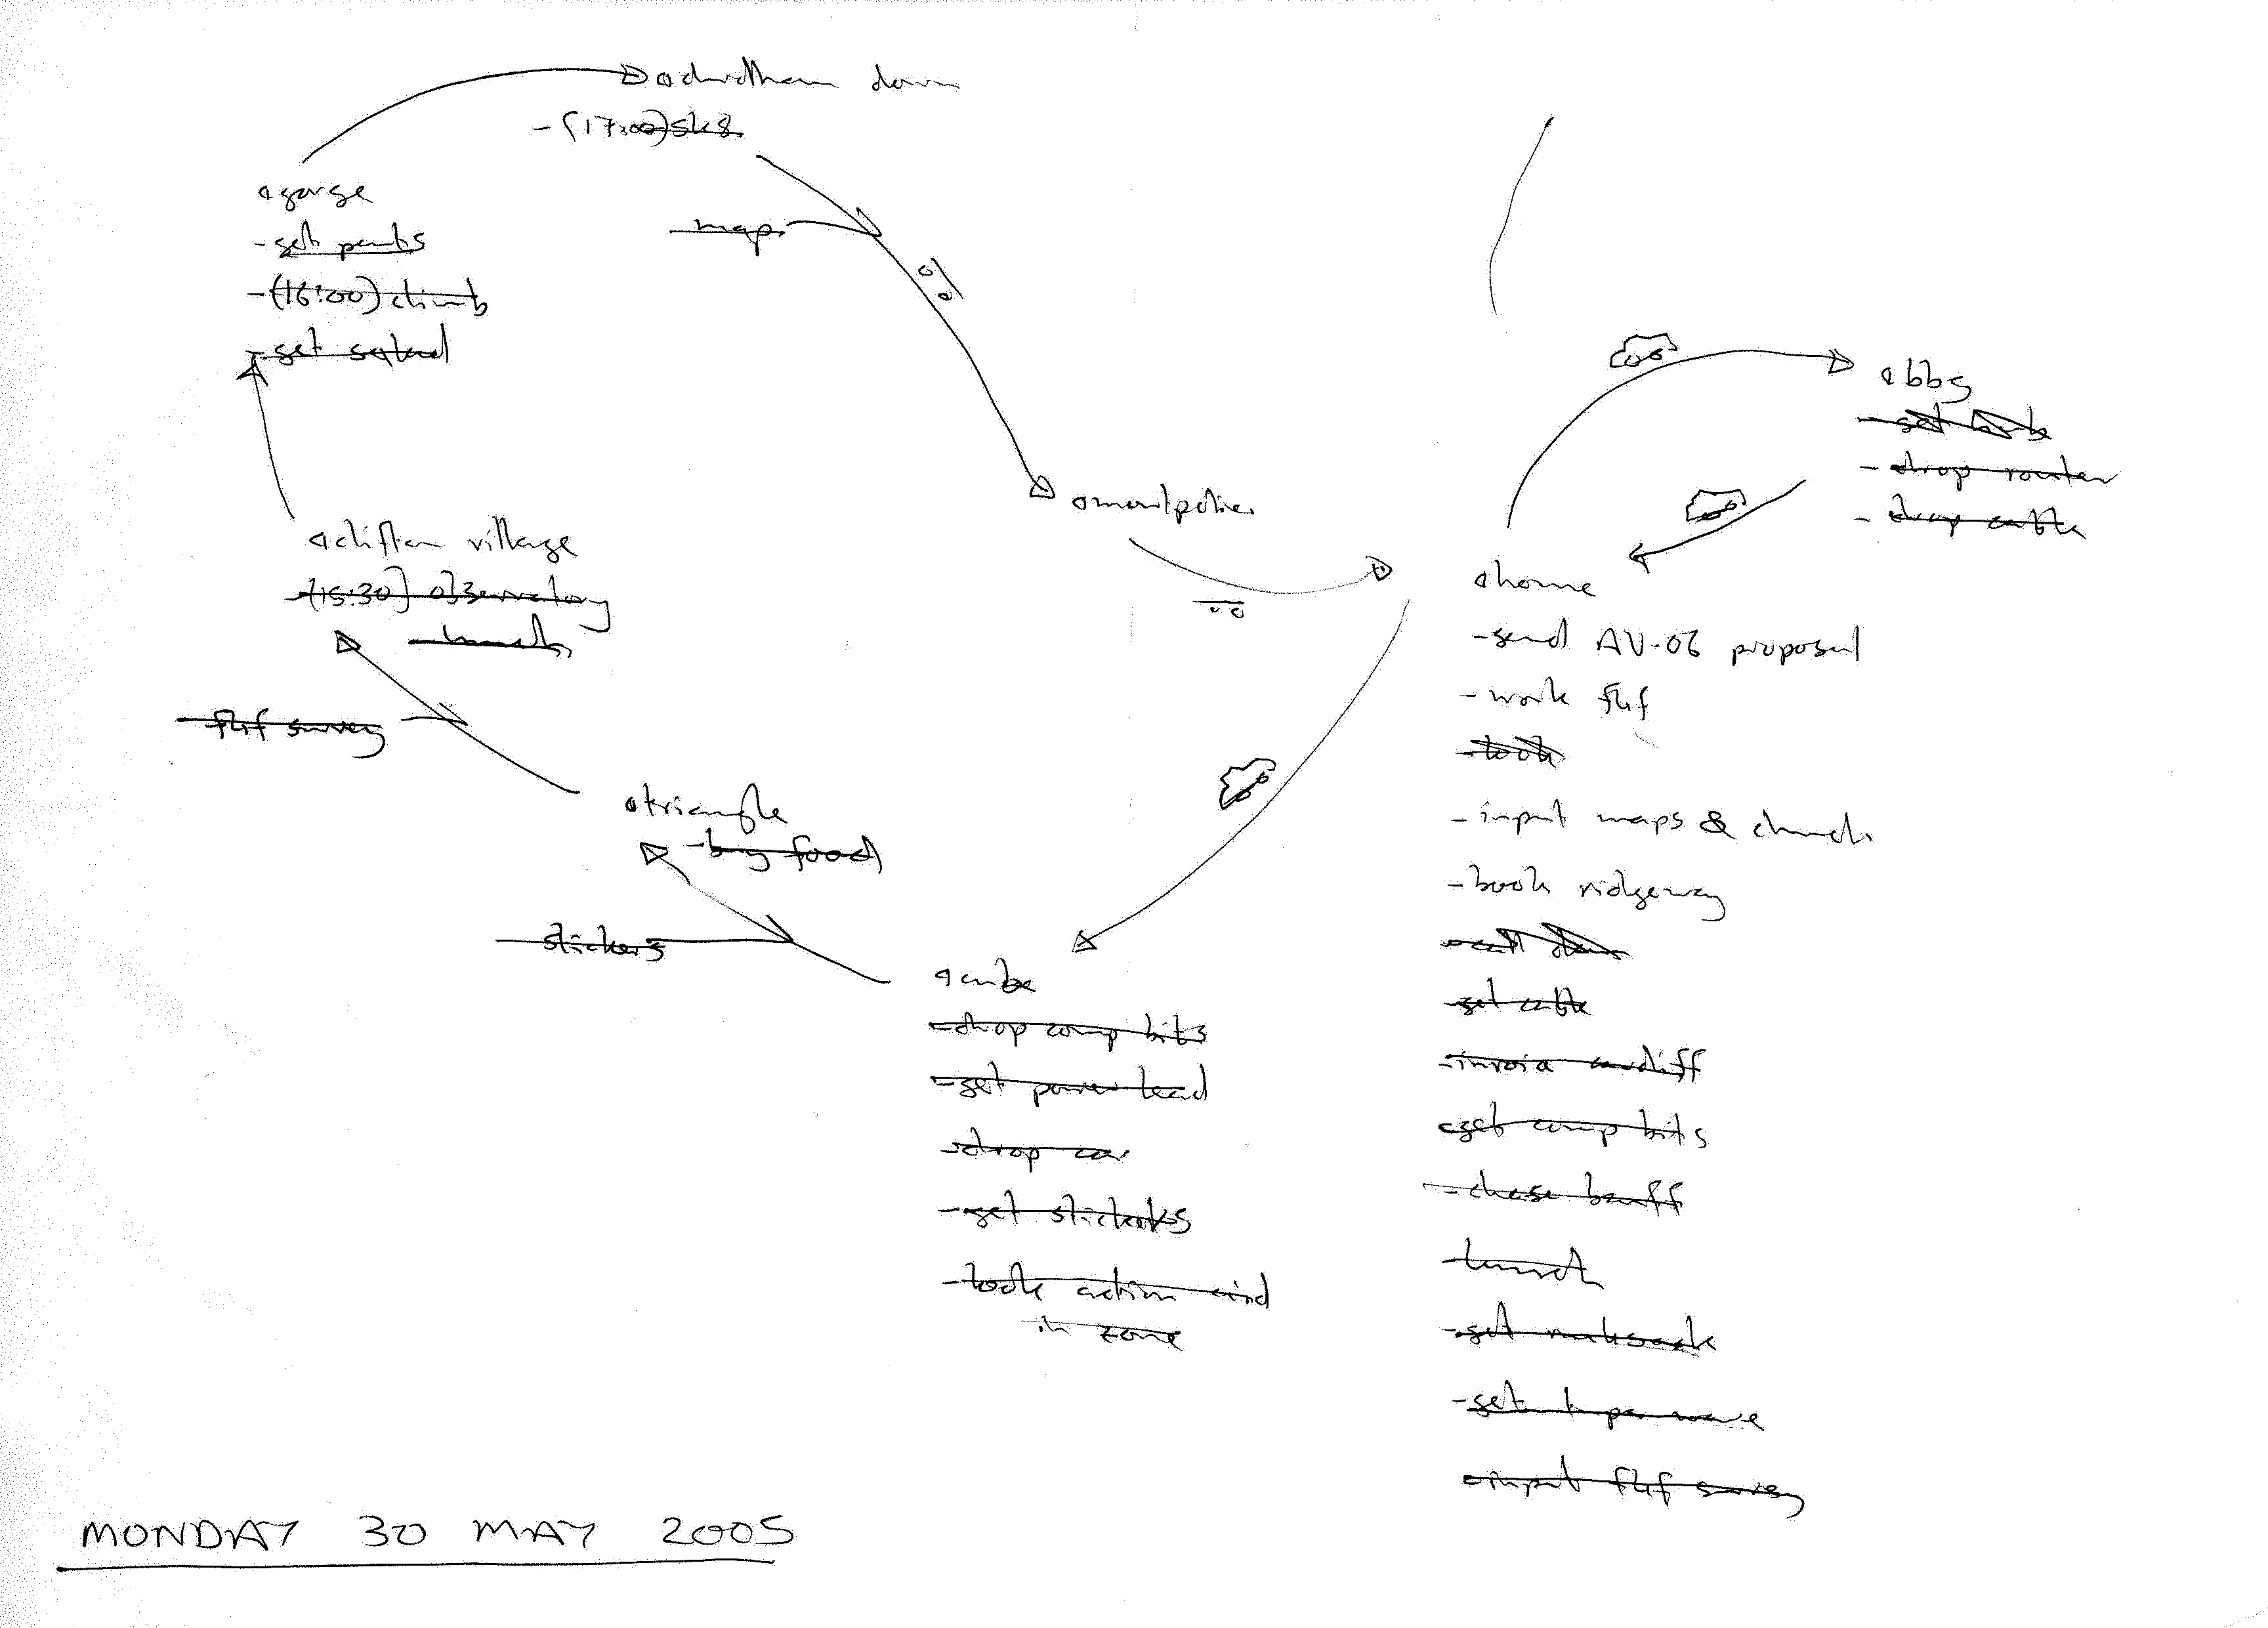 down
- (17:00) sk8
map
@gorge
- get pants
- (16:00) climb
- get
@bbs
- drop router
- drop cable
@montpelier
@clifton village
- (15:30) observatory
@home
- send AV-06 proposal
- work f4f
- input maps & church
- book ridgeway
- get cable
- invoice cardiff
- get comp bits
- chase banff
- lunch
- get rucksack
- get
- input f4f survey
f4f survey
@triangle
- buy food
stickers
@cube
- drop comp bits
- get power lead
- drop car
- get stickers
- action aid
in zone
MONDAY 30 MAY 2005